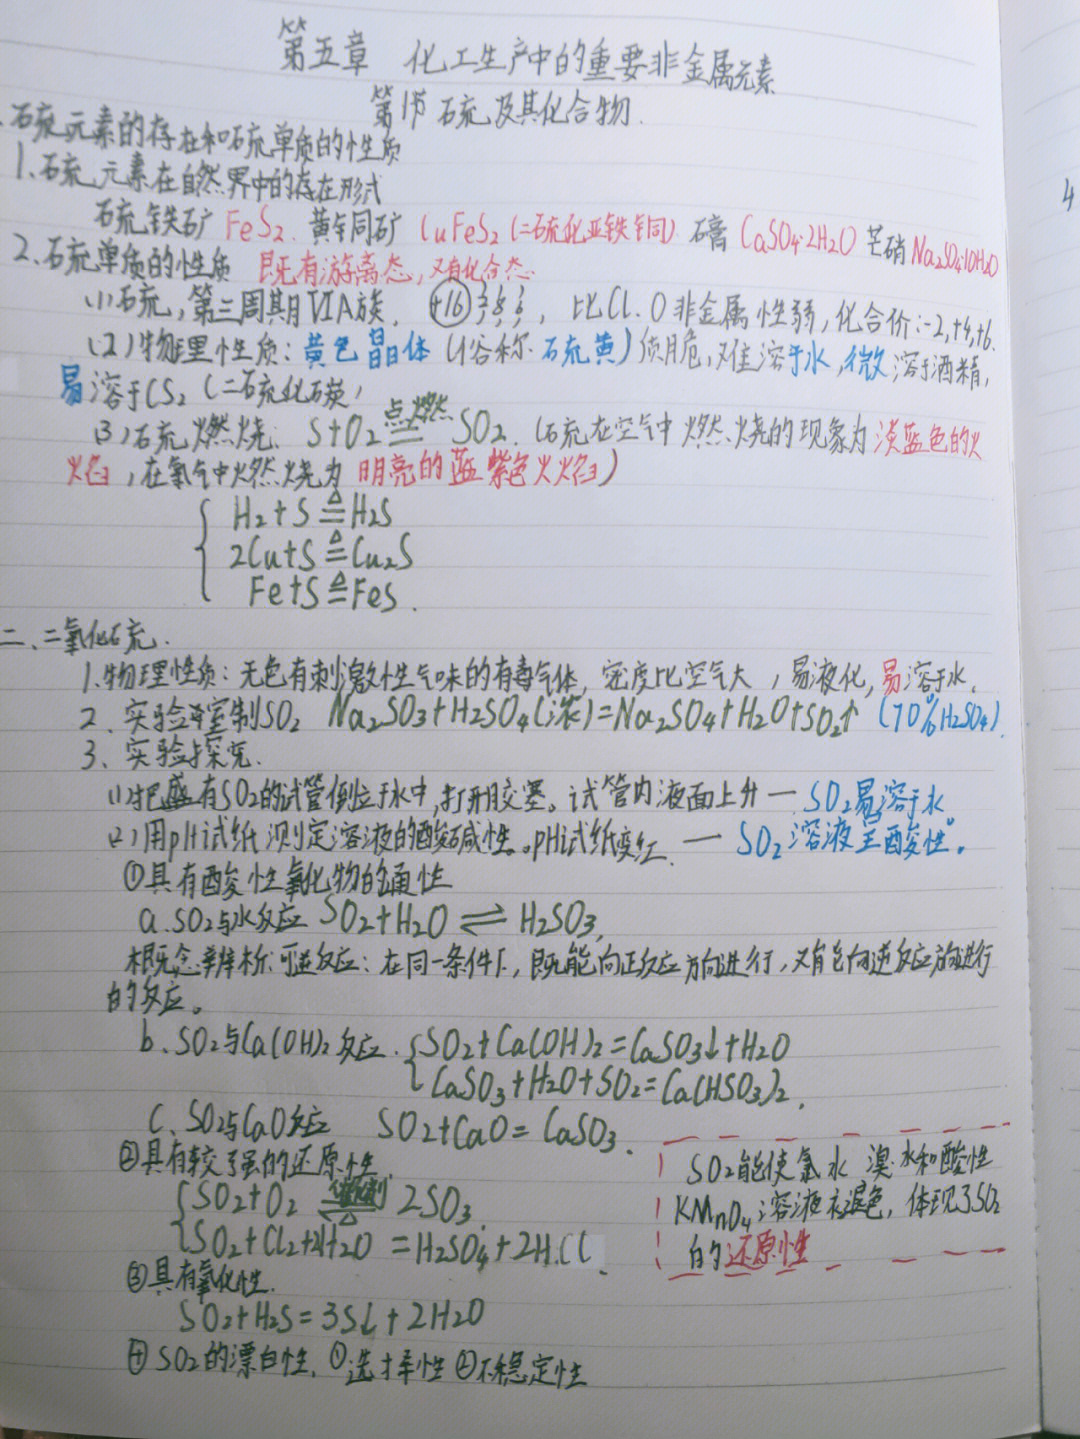 第五章 化工生产中的重要非金属元素
第1节 硫及其化合物.
硫元素的存在和硫单质的性质
1.硫元素在自然界中的存在形式
硫铁矿 FeS₂. 黄铜矿 CuFeS₂(二硫化亚铁铜) 石膏 CaSO₄·2H₂O 芒硝 Na₂SO₄·10H₂O
2.硫单质的性质 既有游离态,又有化合态.
(1)硫,第三周期ⅥA族. +16 2 8 6, 比Cl.O非金属性弱,化合价:-2,+4,+6.
(2)物理性质:黄色晶体(俗称.硫黄)质脆,难溶于水,微溶于酒精,
易溶于CS₂(二硫化碳)
(3)硫燃烧: S+O₂ 点燃= SO₂. (硫在空气中燃烧的现象为淡蓝色的火
焰,在氧气中燃烧为明亮的蓝紫色火焰)
H₂+S △= H₂S
2Cu+S △= Cu₂S
Fe+S △= FeS.
二、二氧化硫.
1.物理性质:无色有刺激性气味的有毒气体,密度比空气大,易液化,易溶于水.
2、实验室制SO₂ Na₂SO₃+H₂SO₄(浓)=Na₂SO₄+H₂O+SO₂↑ (70%H₂SO₄).
3、实验探究.
(1)把盛有SO₂的试管倒立于水中,打开胶塞。试管内液面上升 — SO₂易溶于水
(2)用pH试纸测定溶液的酸碱性。pH试纸变红. — SO₂溶液呈酸性。
①具有酸性氧化物的通性
a.SO₂与水反应 SO₂+H₂O ⇌ H₂SO₃,
概念辨析:可逆反应:在同一条件下,既能向正反应方向进行,又能向逆反应方向进行
的反应。
b、SO₂与Ca(OH)₂反应. SO₂+Ca(OH)₂=CaSO₃↓+H₂O
CaSO₃+H₂O+SO₂=Ca(HSO₃)₂.
C、SO₂与CaO反应 SO₂+CaO=CaSO₃.
②具有较强的还原性.
SO₂+O₂ 催化剂⇌△ 2SO₃
SO₂+Cl₂+2H₂O=H₂SO₄+2HCl.
SO₂能使氯水 溴水和酸性
KMnO₄溶液褪色,体现了SO₂
的还原性
③具有氧化性.
SO₂+H₂S=3S↓+2H₂O
④SO₂的漂白性.①选择性②不稳定性
4